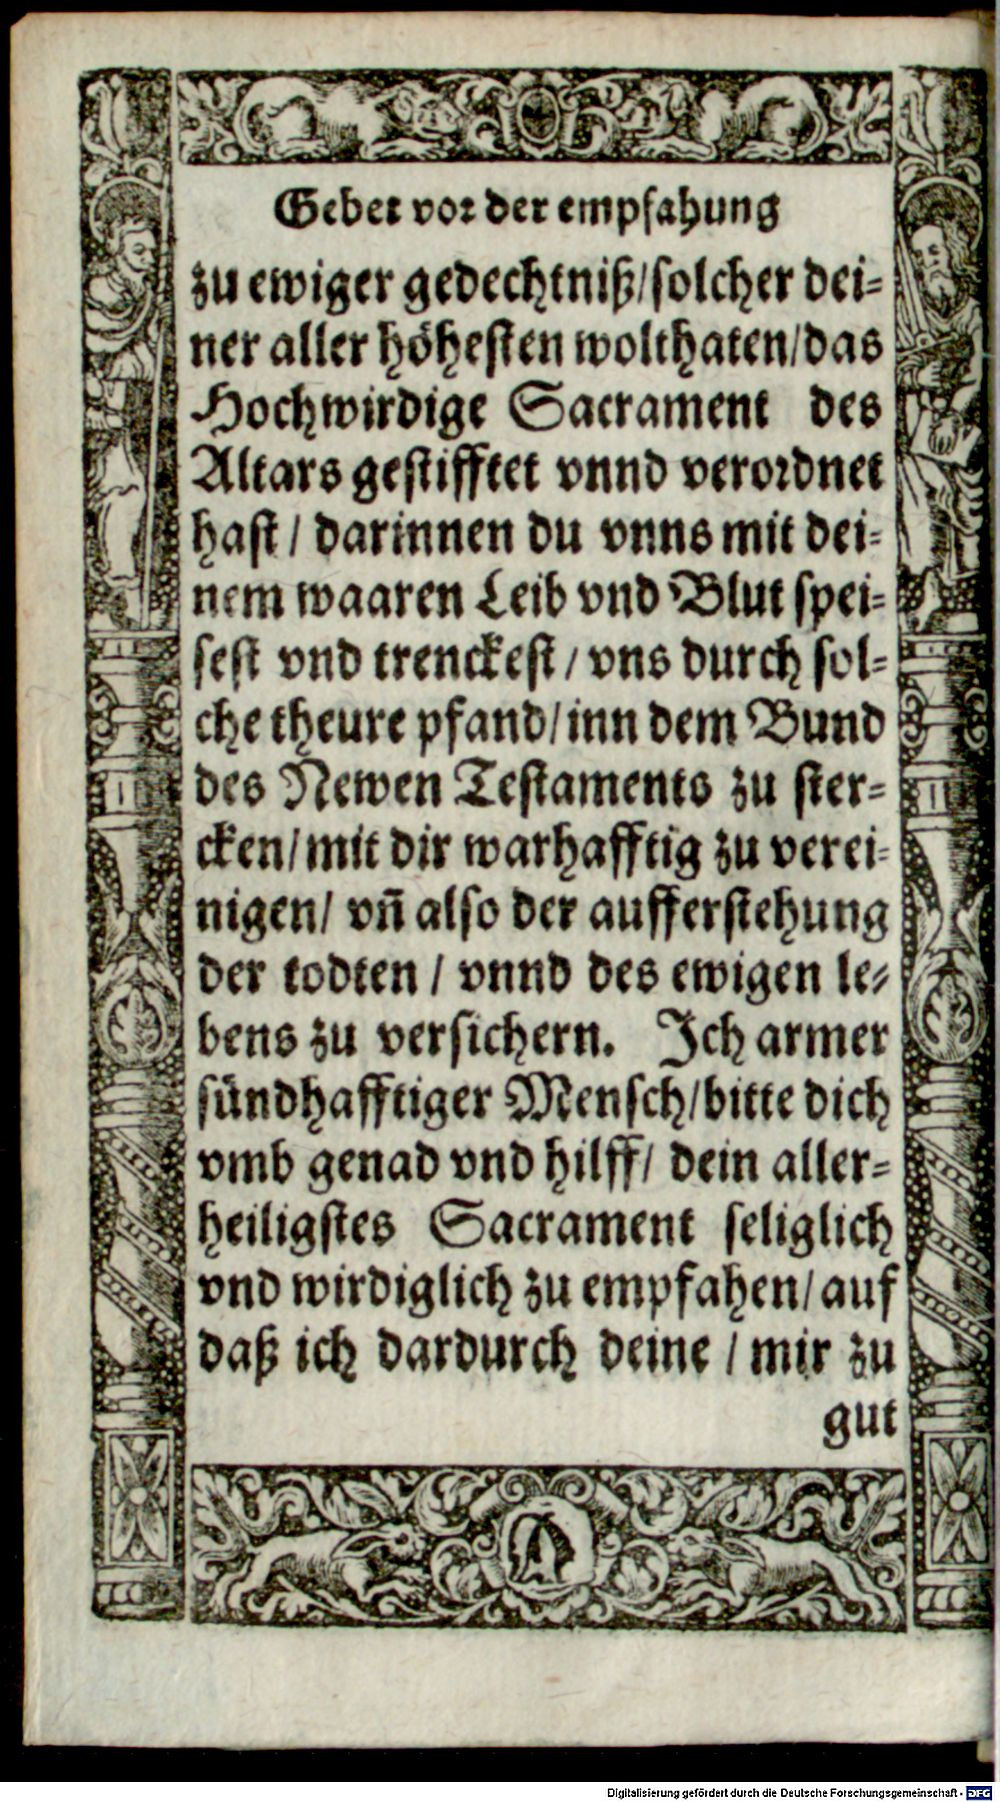 Gebet vor der empfahung
zu ewiger gedechtniß/solcher dei-
ner aller höhesten wolthaten/das
Hochwirdige Sacrament des
Altars gestifftet vnnd verordnet
hast/ darinnen du vnns mit dei-
nem waaren Leib vnd Blut spei-
sest vnd trenckest/vns durch sol-
che theure pfand/inn dem Bund
des Newen Testaments zu ster-
cken/mit dir warhafftig zu verei-
nigen/ vn̄ also der aufferstehung
der todten/ vnnd des ewigen le-
bens zu versichern. Ich armer
sündhafftiger Mensch/bitte dich
vmb genad vnd hilff/ dein aller-
heiligstes Sacrament seliglich
vnd wirdiglich zu empfahen/auf
daß ich dardurch deine / mir zu
gut
Digitalisierung gefördert durch die Deutsche Forschungsgemeinschaft - DFG